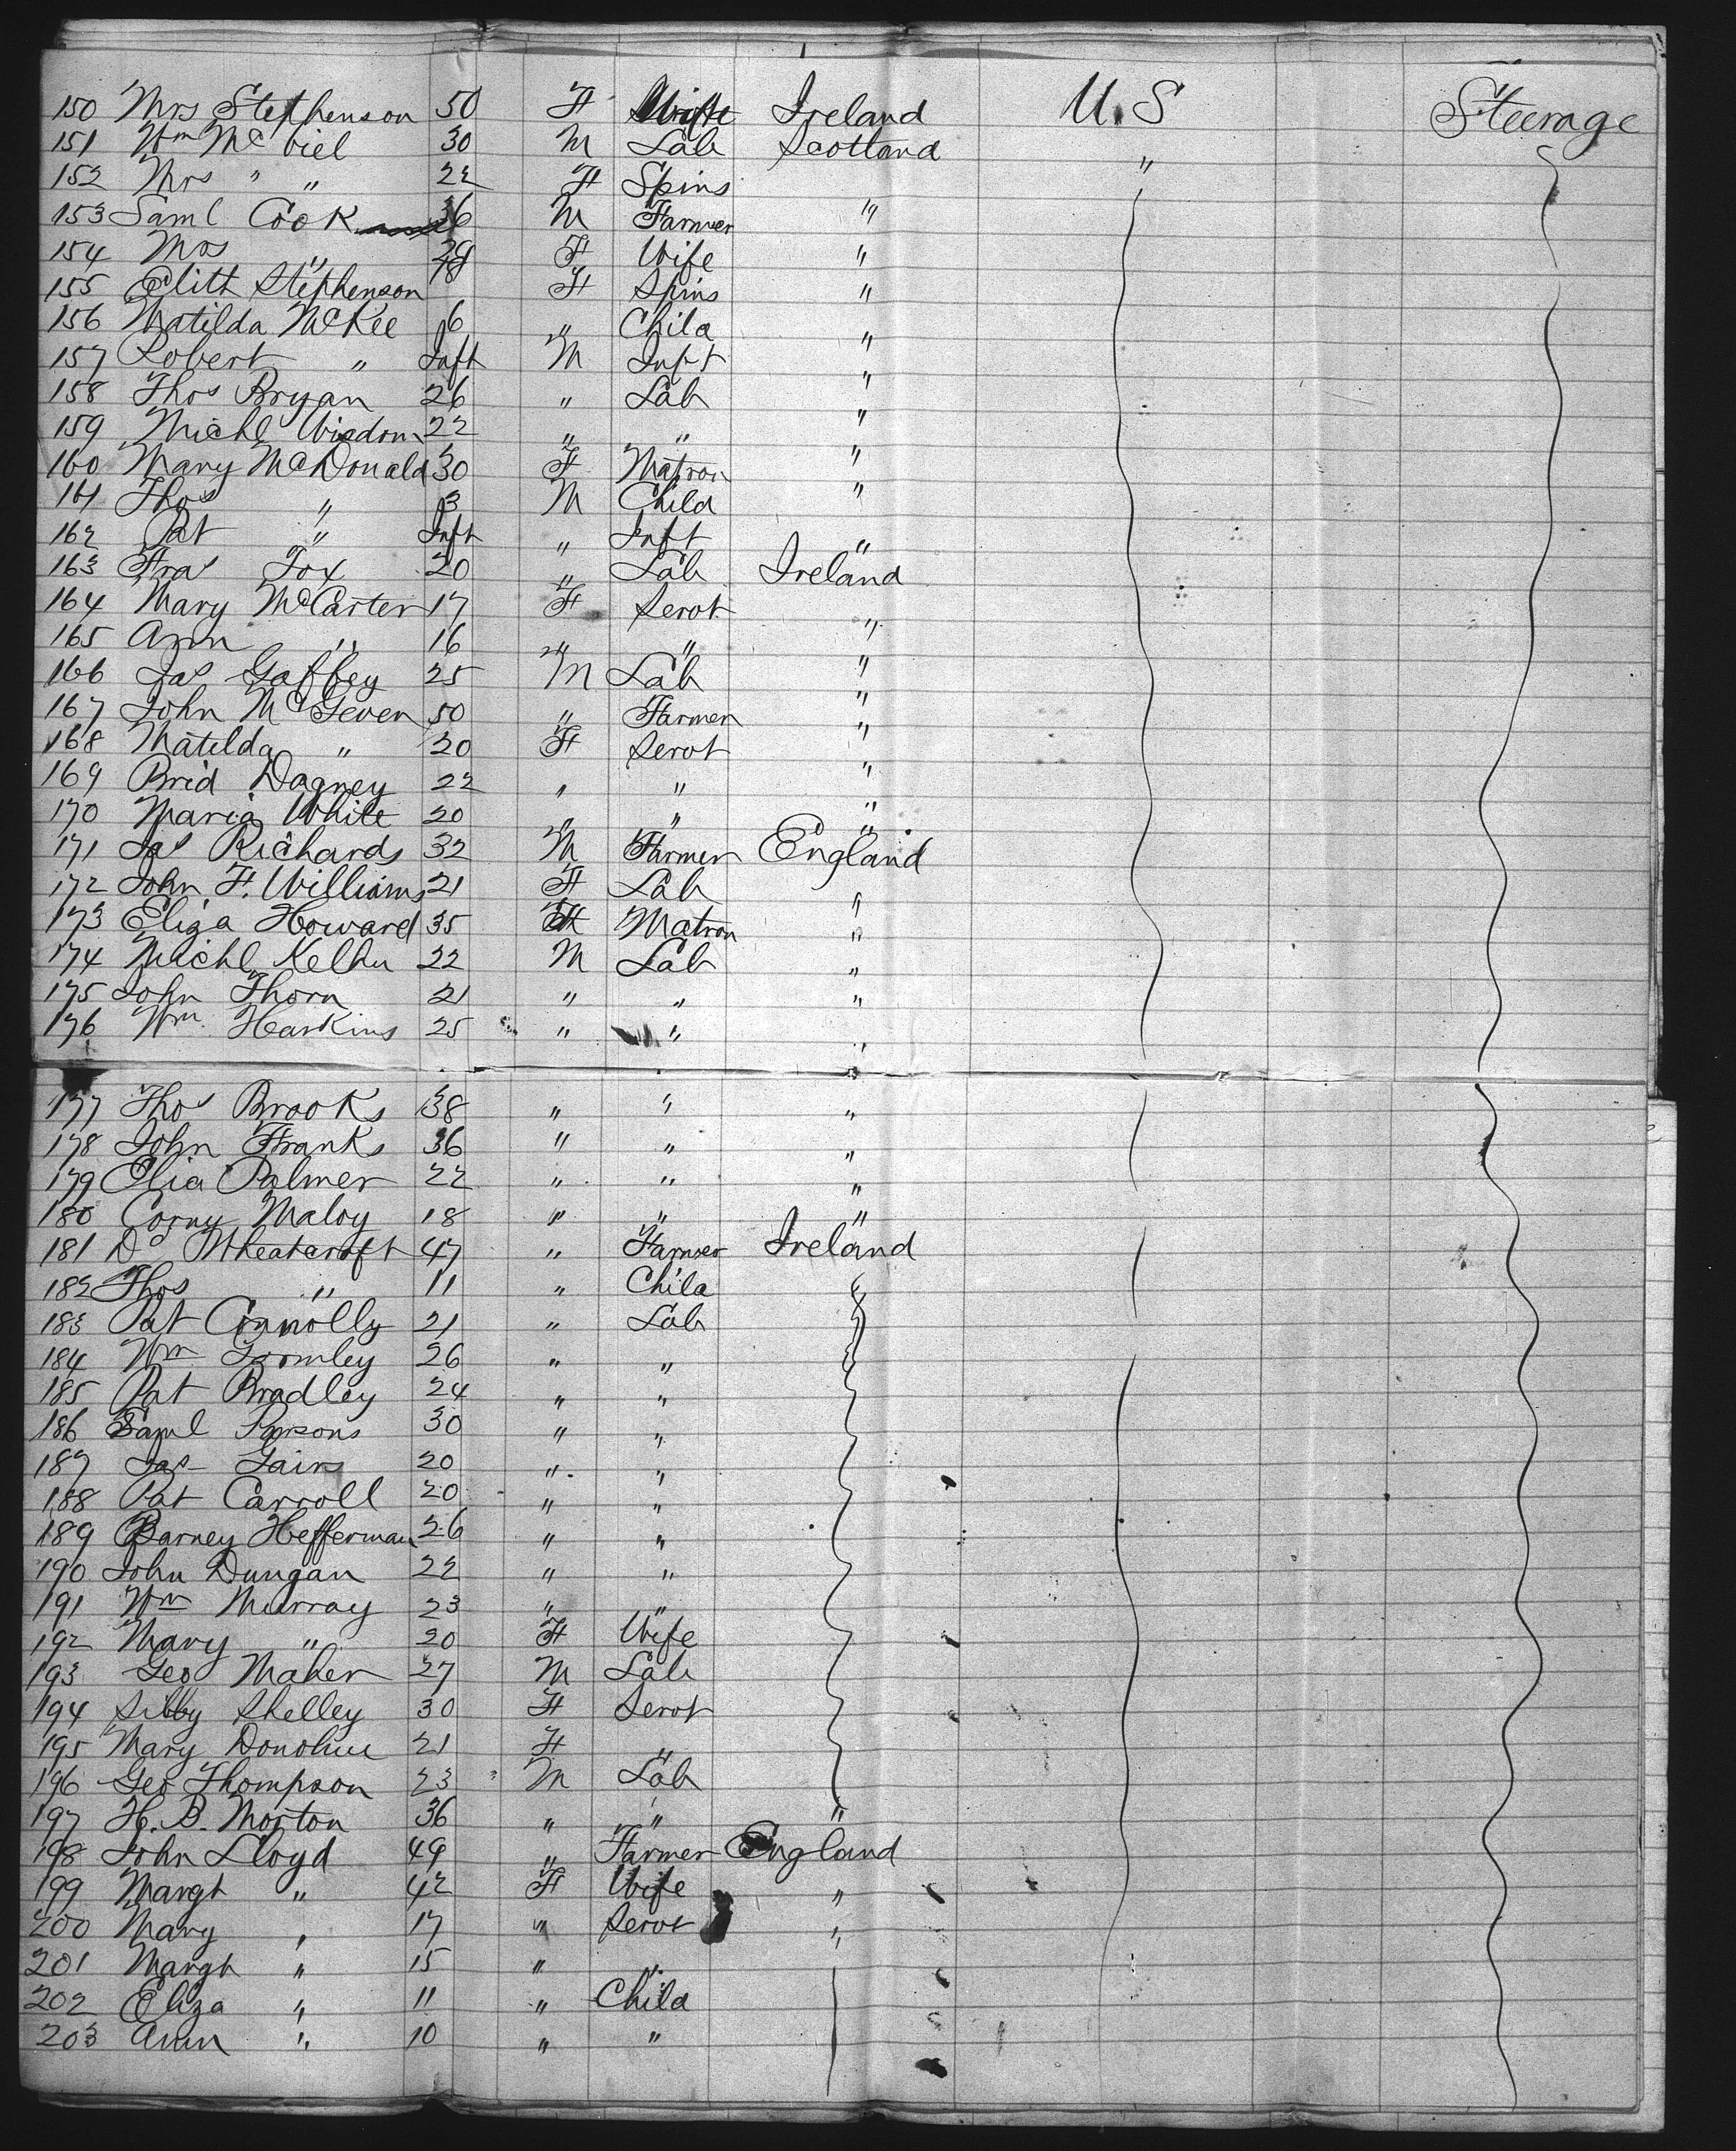 150 Mrs Stephenson 50 F Wife Ireland U.S Steerage
151 Wm McNiel 30 M Lab Scotland "
152 Mrs " " 22 F Spins
153 Saml Cook 36 M Farmer "
154 Mrs " 29 F Wife "
155 Stephenson 18 F Spins "
156 Matilda McKee 6 " Child "
157 Robert " Inft M Inft "
158 Thos Bryan 26 " Lab "
159 Michl Wisdom 22 " " "
160 Mary McDonald 30 F Matron "
161 Thos " 3 M Child
162 Pat " Inft " Inft "
163 Fras Fox 20 " Lab Ireland
164 Mary McCarter 17 F Servt "
165 Ann " 16 " " "
166 Jas Gaffey 25 M Lab "
167 John McGeven 50 " Farmer "
168 Matilda " 20 F Servt "
169 Brid Dagney 22 " " "
170 Maria White 20 " " "
171 Jas Richards 32 M Farmer England
172 John F. Williams 21 F Lab "
173 Eliza Howard 35 F Matron "
174 Michl 22 M Lab "
175 John Thorn 21 " " "
176 Wm. Harkins 25 " " "
177 Thos Brooks 38 " " "
178 John Franks 36 " " "
179 Elia Palmer 22 " " "
180 Corny Maloy 18 " " "
181 Dd Wheatcroft 47 " Farmer Ireland
182 Thos " 11 " Child
183 Pat Connolly 21 " Lab
184 Wm Gormley 26 " "
185 Pat Bradley 24 " "
186 Saml Parsons 30 " "
187 Jas Gains 20 " "
188 Pat Carroll 20 " "
189 Barney Hefferman 26 " "
190 John Dungan 22 " "
191 Wm Murray 23 " "
192 Mary " 20 F Wife
193 Geo Maher 27 M Lab
194 Sibby Shelley 30 F Servt
195 Mary Donohue 21 F "
196 Geo Thompson 23 M Lab
197 H. B. Morton 36 " " "
198 John Lloyd 49 " Farmer England
199 Margt " 42 F Wife "
200 Mary " 17 " Servt "
201 Margt " 15 " "
202 Eliza " 11 " Child
203 Ann " 10 " "